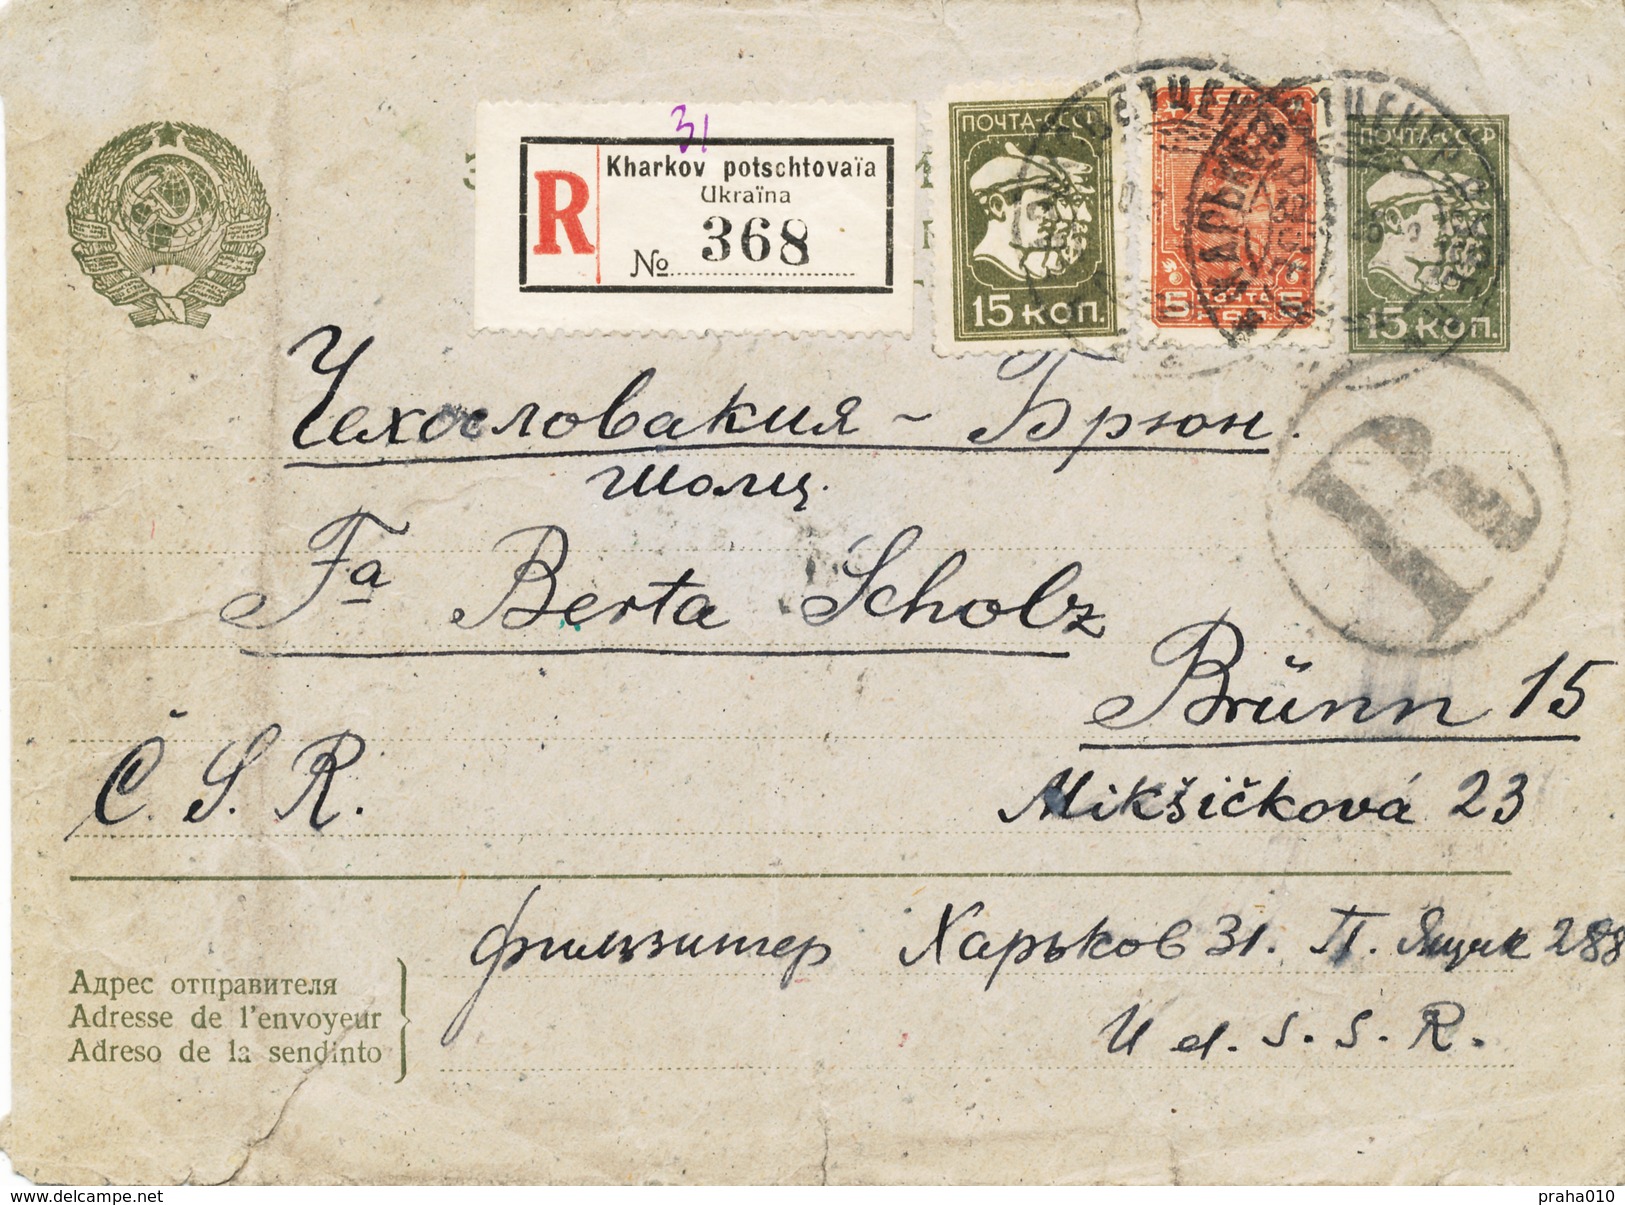 31
R
Kharkov potschtovaïa
Ukraïna
№ 368
ПОЧТА-СССР
15 КОП.
5 ПОЧТА 5
ПОЧТА-СССР
15 КОП.
ХАРЬКОВ
R
Чехословакия ~ Брюн.
Шолц.
Fa Berta Scholz
Brünn 15
Č. S. R.
Mikšičková 23
Харьков 31. П. Ящик 288
U d. S. S. R.
Адрес отправителя
Adresse de l'envoyeur
Adreso de la sendinto
www.delcampe.net
praha010